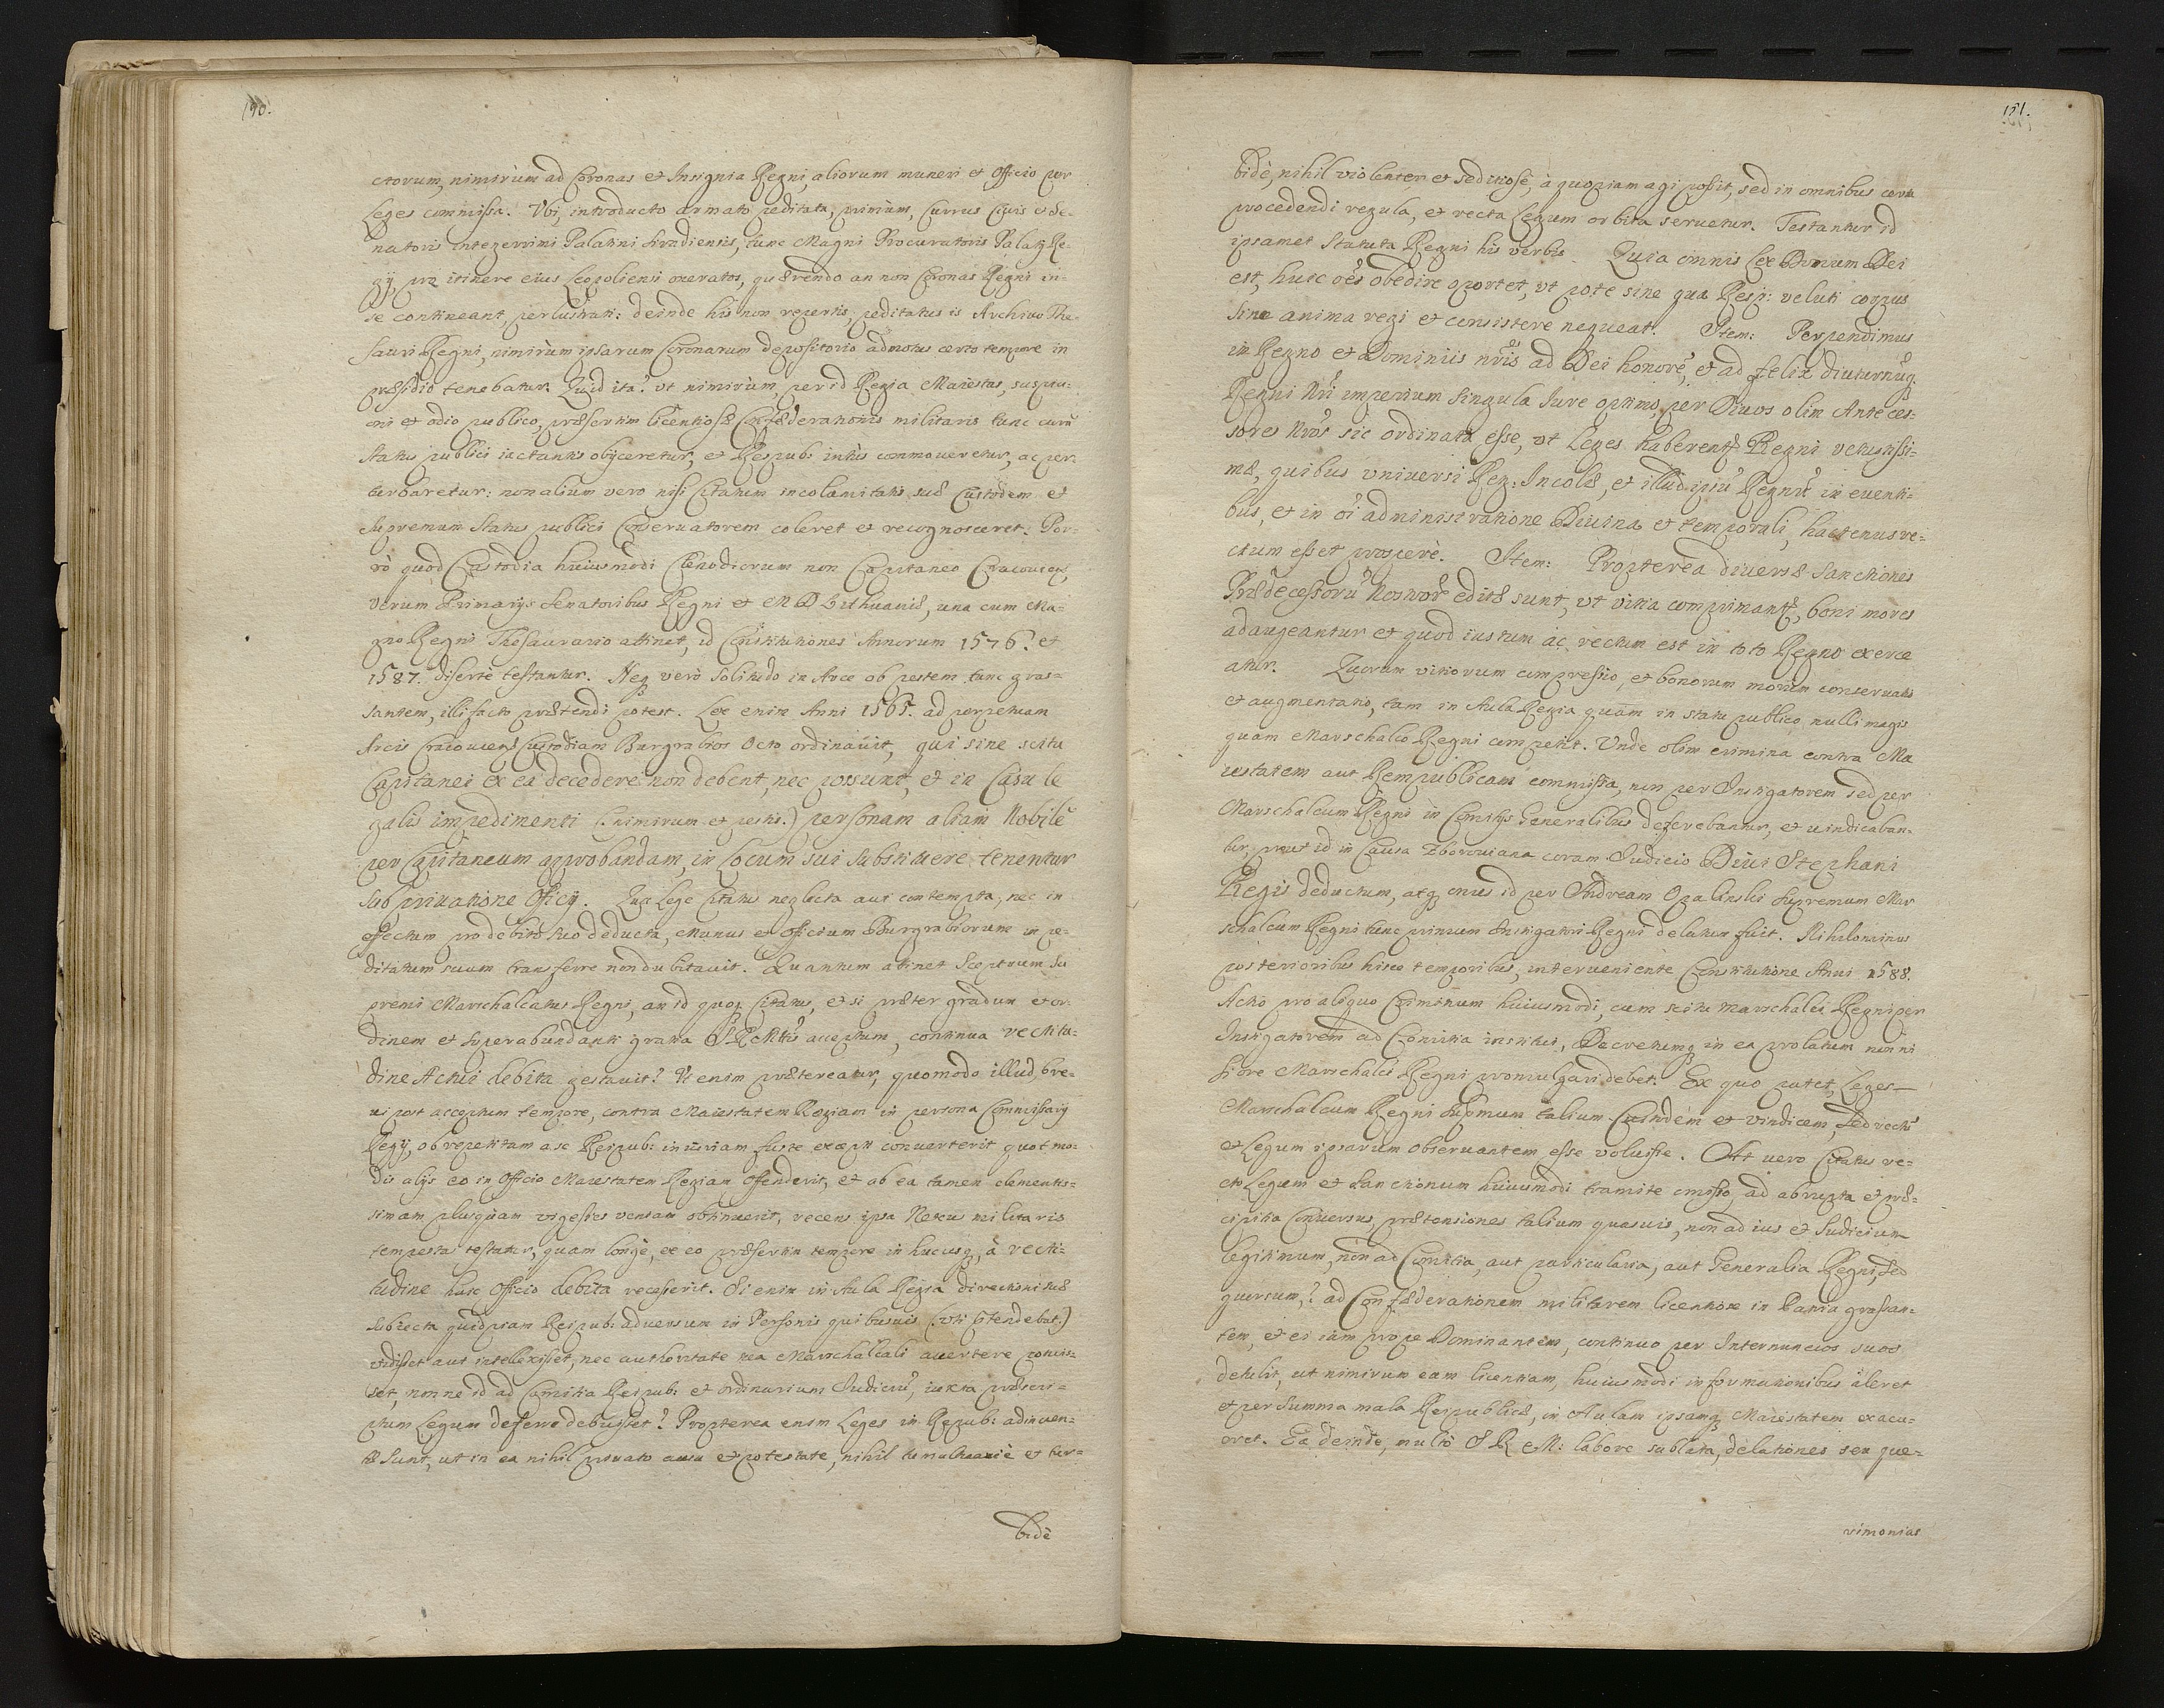 190.
ctorum, nimirùm ad Coronas et Insignia Regni, aliorum muneri et Officio per
Leges commissa. Vbi, introducto armato peditatu, primùm, Currus Ciuis et Se-
natoris integerrimi Palatini Siradiensis, tunc Magni Procuratoris Palatij Re-
gij, pro itinere eius Leopoliensi oneratos, quærendo an non Coronas Regni in
se contineant, perlustrati: deinde his non repertis, peditatus is Archiuo The-
sauri Regni, nimirùm ipsarum Coronarum depositorio admotus certo tempore in
præsidio tenebatur. Quid ita? vt nimirùm, per id Regia Maiestas, suspici-
oni et odio publico, præsertim licentiosæ Confœderationis militaris tunc curã
status publici iactantis obijceretur, et Respub: intùs commoueretur, ac per-
turbaretur: non alium vero nisi Citatum incolumitatis suæ Custodem et
Supremum Status publici Conseruatorem coleret et recognosceret. Por-
rò quod Custodia huiusmodi Clenodiorum non Capitaneo Cracouien,
verum Primarijs Senatoribus Regni et M D Lithuaniæ, una cum Ma-
gno Regni Thesaurario attinet, id Constitutiones Annorum 1576. et
1587. disertè testantur. Neq vero solitudo in Arce ob pestem tunc gras-
santem, illi facto prætendi potest. Lex enim Anni 1565. ad perpetuam
Arcis Cracouiens Custodiam Burgrabios Octo ordinauit, qui sine scitu
Capitanei ex ea decedere non debent, nec possunt, et in Casu le
galis impedimenti (nimirum et pestis.) personam aliam Nobilẽ
per Capitaneum approbandam, in Locum sui substituere tenentur
sub priuatione Officij. Qua Lege Citatus neglecta aut contempta, nec in
effectum pro debito suo deducta, Munus et Officium Burgrabiorum in pe-
ditatum suum transferre non dubitauit. Quantum attinet Sceptrum Su
premi Marschalcatus Regni, an id quoq Citatus, etsi præter gradum et or-
dinem et superabundanti gratia S R Mtis acceptum, continua rectitu-
dine Actui debita gestauit? Vt enim prætereatur, quomodo illud, bre-
ui post acceptum tempore, contra Maiestatem Regiam in persona Commissarij
Regij, ob repetitam a se Reipub: iniuriam fuste excepti conuerterit quot mo-
dis alijs eo in Officio Maiestatem Regiam offenderit, et ab ea tamen clementis-
simam plusquam vigesies veniam obtinuerit, recens ipsa Nexus militaris
tempestas testatur, quam longè, ex eo præsertim tempore in hucusq, à recti-
tudine huic Officio debita recesserit. Si enim in Aula Regia directioni suæ
subiecta quidpiam Reipub: aduersum in Personis quibusuis (vti ostendebat.)
vidisset aut intelexisset, nec authoritate sua Marschalcali auertere potuis-
set, nonne id ad Comitia Reipub: et ordinarium Iudiciũ, iuxta præscri-
ptum Legum deferre debuisset? Propterea enim Leges in Repub: adinuen-
tæ sunt, ut in ea nihil priuato ausu et potestate, nihil tumultuariè et tur-
bidè
191.
bidè, nihil violenter et seditiosè, à quopiam agi possit, sed in omnibus certa
procedendi regula, et recta Legum orbita seruetur. Testantur id
ipsamet Statuta Regni his verbis. Quia omnis Lex Donum Dei
est, huic oẽs obedire oportet, vt pote sine qua Resp: veluti corpus
sine anima regi et consistere nequeat. Item: Perpendimus
in Regno et Dominiis nris ad Dei honorẽ, et ad felix diuturnũq
Regni Nri imperium singula iure optimo, per Diuos olim Anteces-
sores Nros sic ordinata esse, vt Leges haberent Regni vetustissi-
mæ, quibus vniuersi Reg: Incolæ, et illud ipsũ Regnũ in euenti-
bus, et in oi administratione Diuina et temporali, hactenus re-
ctum esset prosperè. Item: Propterea diuersæ Sanctiones
Prædecessorũ Nostror editæ sunt, vt vitia comprimant, boni mores
adaugeantur et quod iustum ac rectum est in toto Regno exerce
atur. Quorum vitiorum compressio, et bonorum morum conseruatio
et augmentatio, tam in Aula Regia quàm in statu publico, nulli magis
quam Marschalco Regni competit. Vnde olim crimina contra Ma
iestatem aut Rempublicam commissa, non per Instigatorem sed per
Marschalcum Regni in Comitijs Generalibus deferebantur, et uindicaban-
tur, prout id in Causa Zborouiana coram Iudicio Diui Stephani
Regis deductum, atq onus id per Andream Opalinski Supremum Mar
schalcum Regni tunc primum Instigatori Regni delatum fuit. Nihilominus
posterioribus hisce temporibus, interueniente Constitutione Anni 1588.
Actio pro aliquo Criminum huiusmodi, cum scitu Marschalci Regni per
Instigatorem ad Comitia institui, Decretumq in ea prolatum non ni
si ore Marschalci Regni promulgari debet. Ex quo patet, Leges
Marschalcum Regni supmum talium Custodem et vindicem, sed recti
et Legum ipsarum obseruantem esse voluisse. At uero Citatus re-
cto Legum et Sanctionum huiusmodi tramite omisso, ad abrupta et præ-
cipitia Conuersus, prætensiones talium quasuis, non ad ius et Iudicium
legitimum, non ad Comitia, aut particularia, aut Generalia Regni, sed
quorsum,? ad Confœderationem militarem licentiose in Patria grassan-
tem, et ei iam prope Dominantem, continuo per Internuncios suos
detulit, ut nimirum eam licentiam, huiusmodi informationibus aleret
et per summa mala Reipublicæ, in Aulam ipsamq Maiestatem exacu-
eret. Ea deinde, multò S R M: labore sublata, delationes seu que-
rimonias